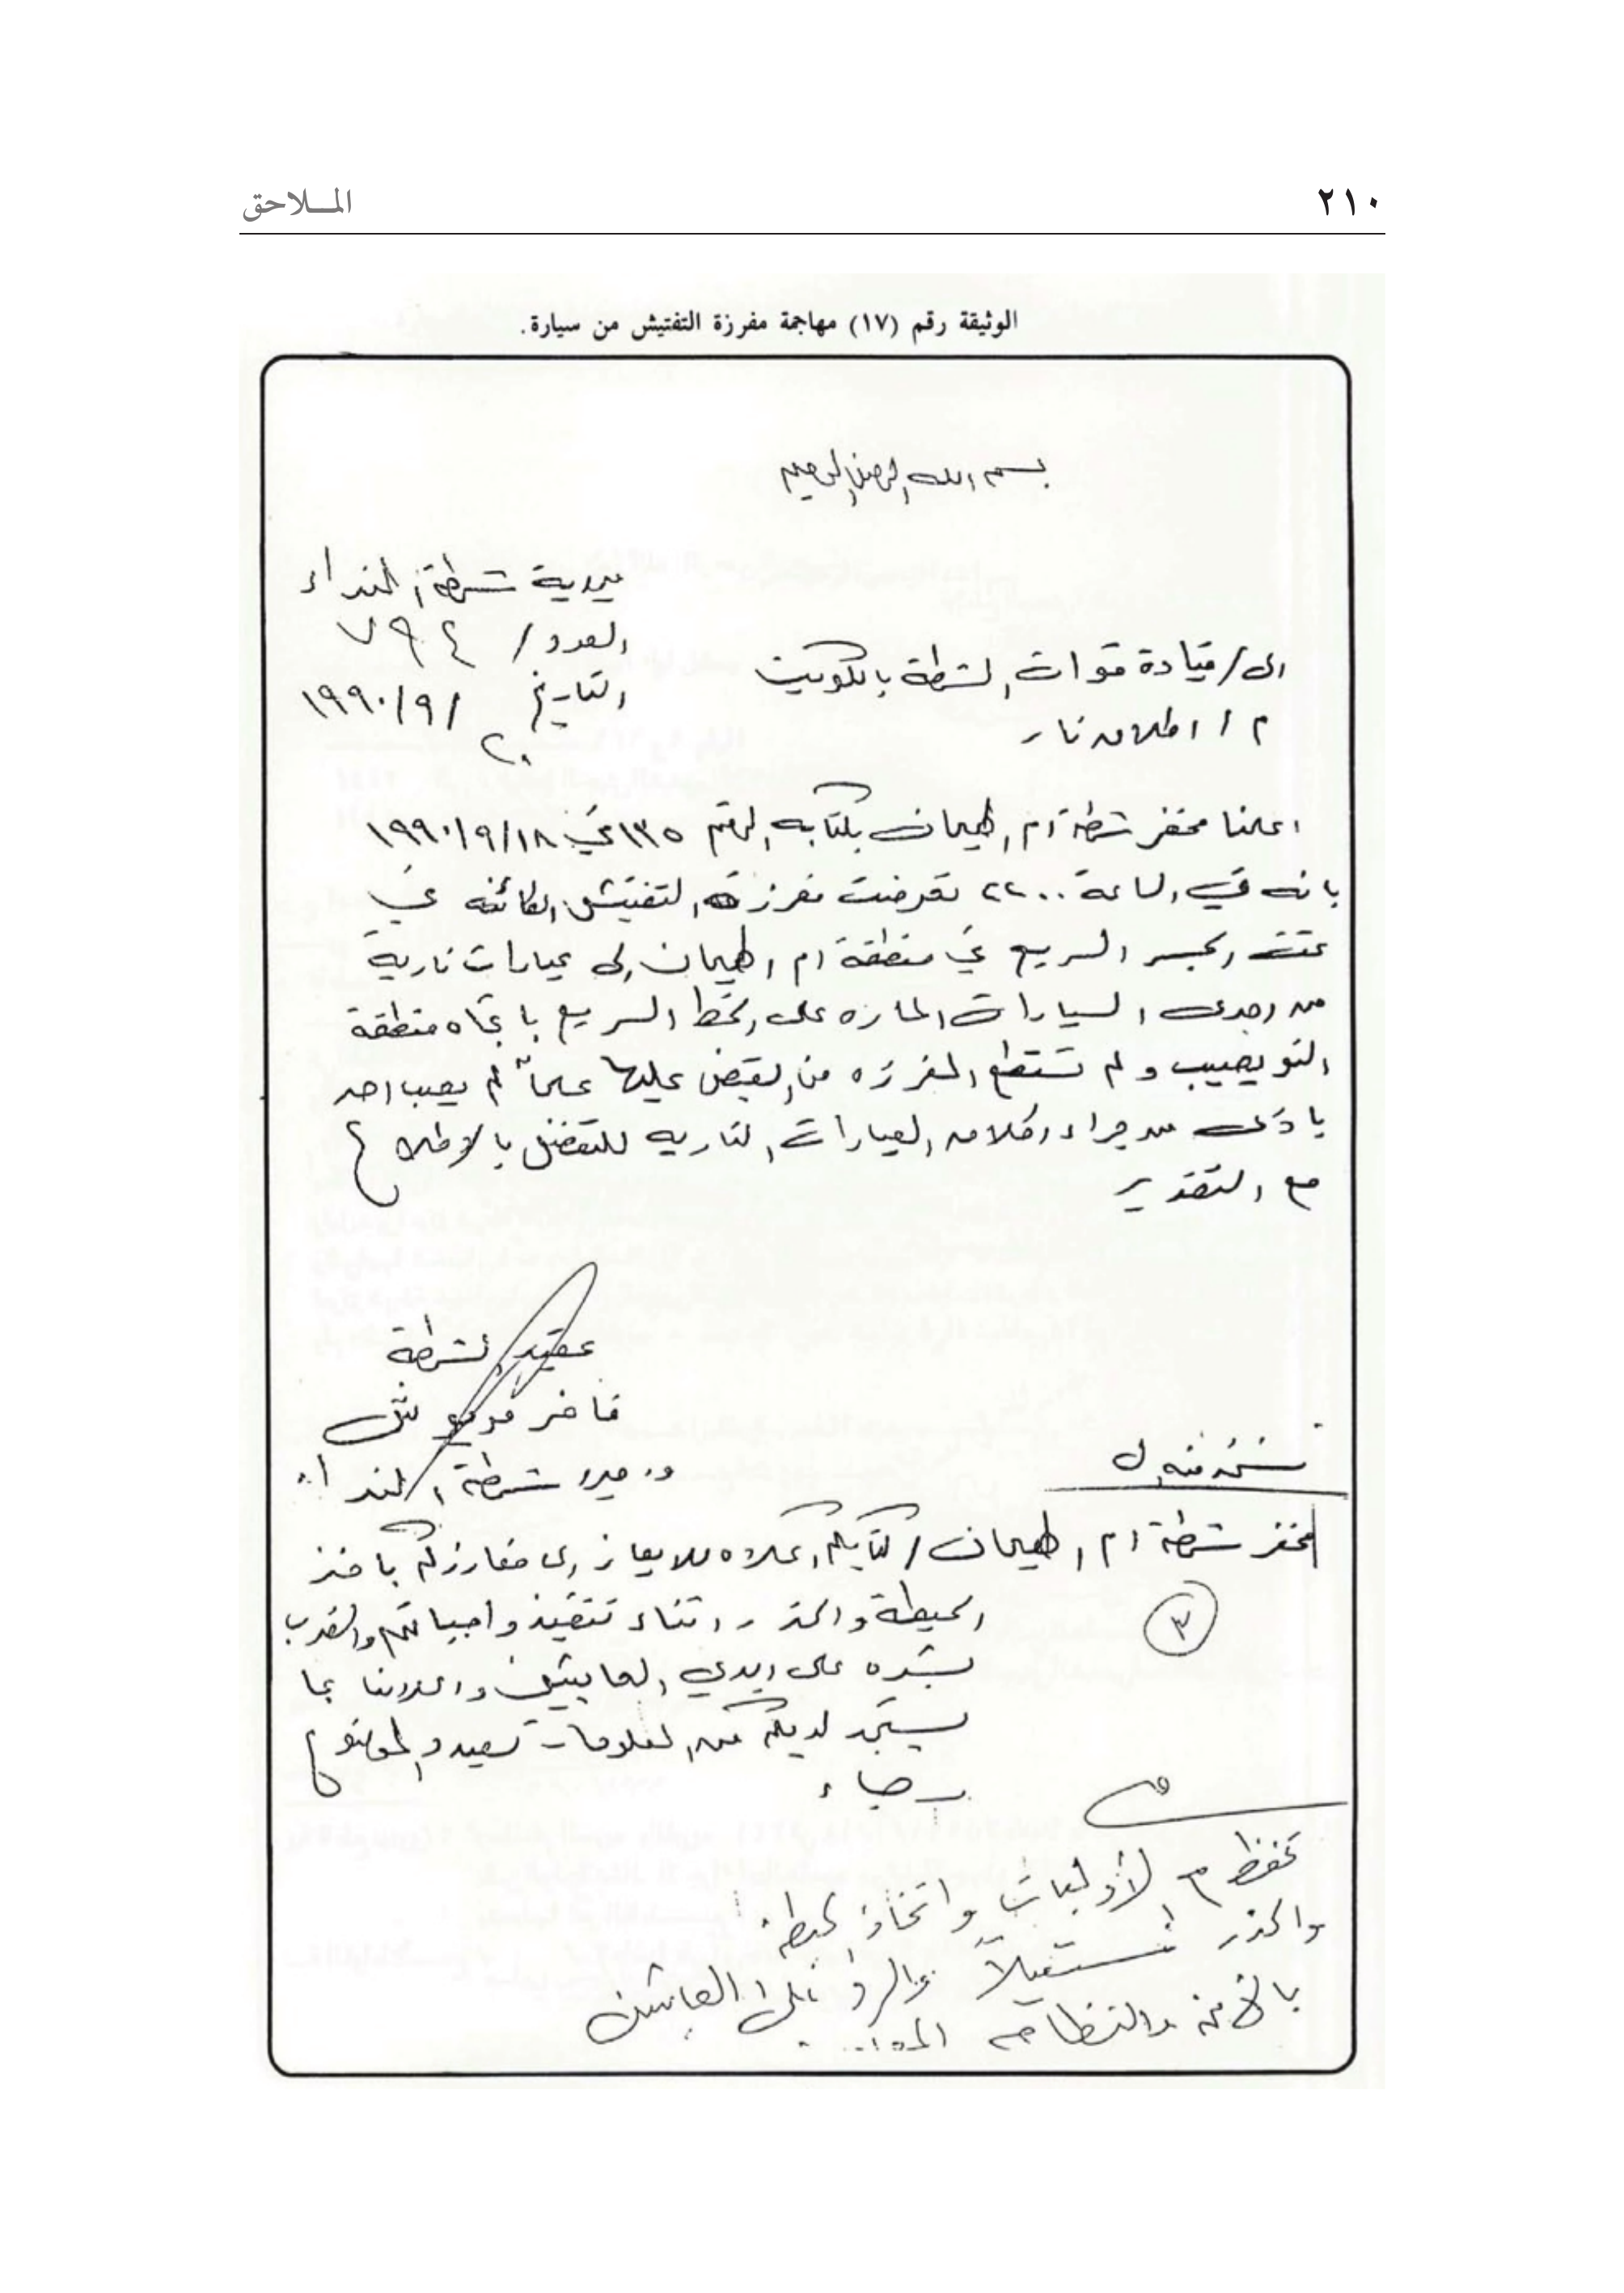 ٢١٠
المـلاحق
الوثيقة رقم (١٧) مهاجمة مفرزة التفتيش من سيارة.
بسم الله الرحمن الرحيم
مديرية شرطة النداء
العدد / ٧٩٤
التاريخ ٢٠ / ٩ / ١٩٩٠
الى / قيادة قوات الشرطة بالكويت
م / اطلاق نار
اعلمنا مخفر شرطة ام الهيمان بكتابه المرقم ١٣٥ في ١٨ / ٩ / ١٩٩٠
بانه في الساعة ٢٢٠٠ تعرضت مفرزة التفتيش الكائنه في
الجسر السريع في منطقة ام الهيمان الى عيارات نارية
من احدى السيارات الماره على الخط السريع باتجاه منطقة
النويصيب ولم تستطع المفرزه من القبض عليها علماً لم يصب احد
باذى من جراء اطلاق العيارات الناريه للتفضل بالاطلاع
مع التقدير
عقيد الشرطة
فاخر
و. مدير شرطة النداء
نسخه منه الى
مخفر شرطة ام الهيمان / كتابكم اعلاه للايعاز الى مفارزكم باخذ
الحيطة والحذر اثناء تنفيذ واجباتكم والضرب
بشده على ايدي العابثين واعلامنا بما
يستجد لديكم من معلومات تصدد الموضوع
رجاء
٣
تحفظ م الأوليات واتخاذ الحيطه
والحذر مستقبلاً والرد على العابثين
بالأمن والنظام